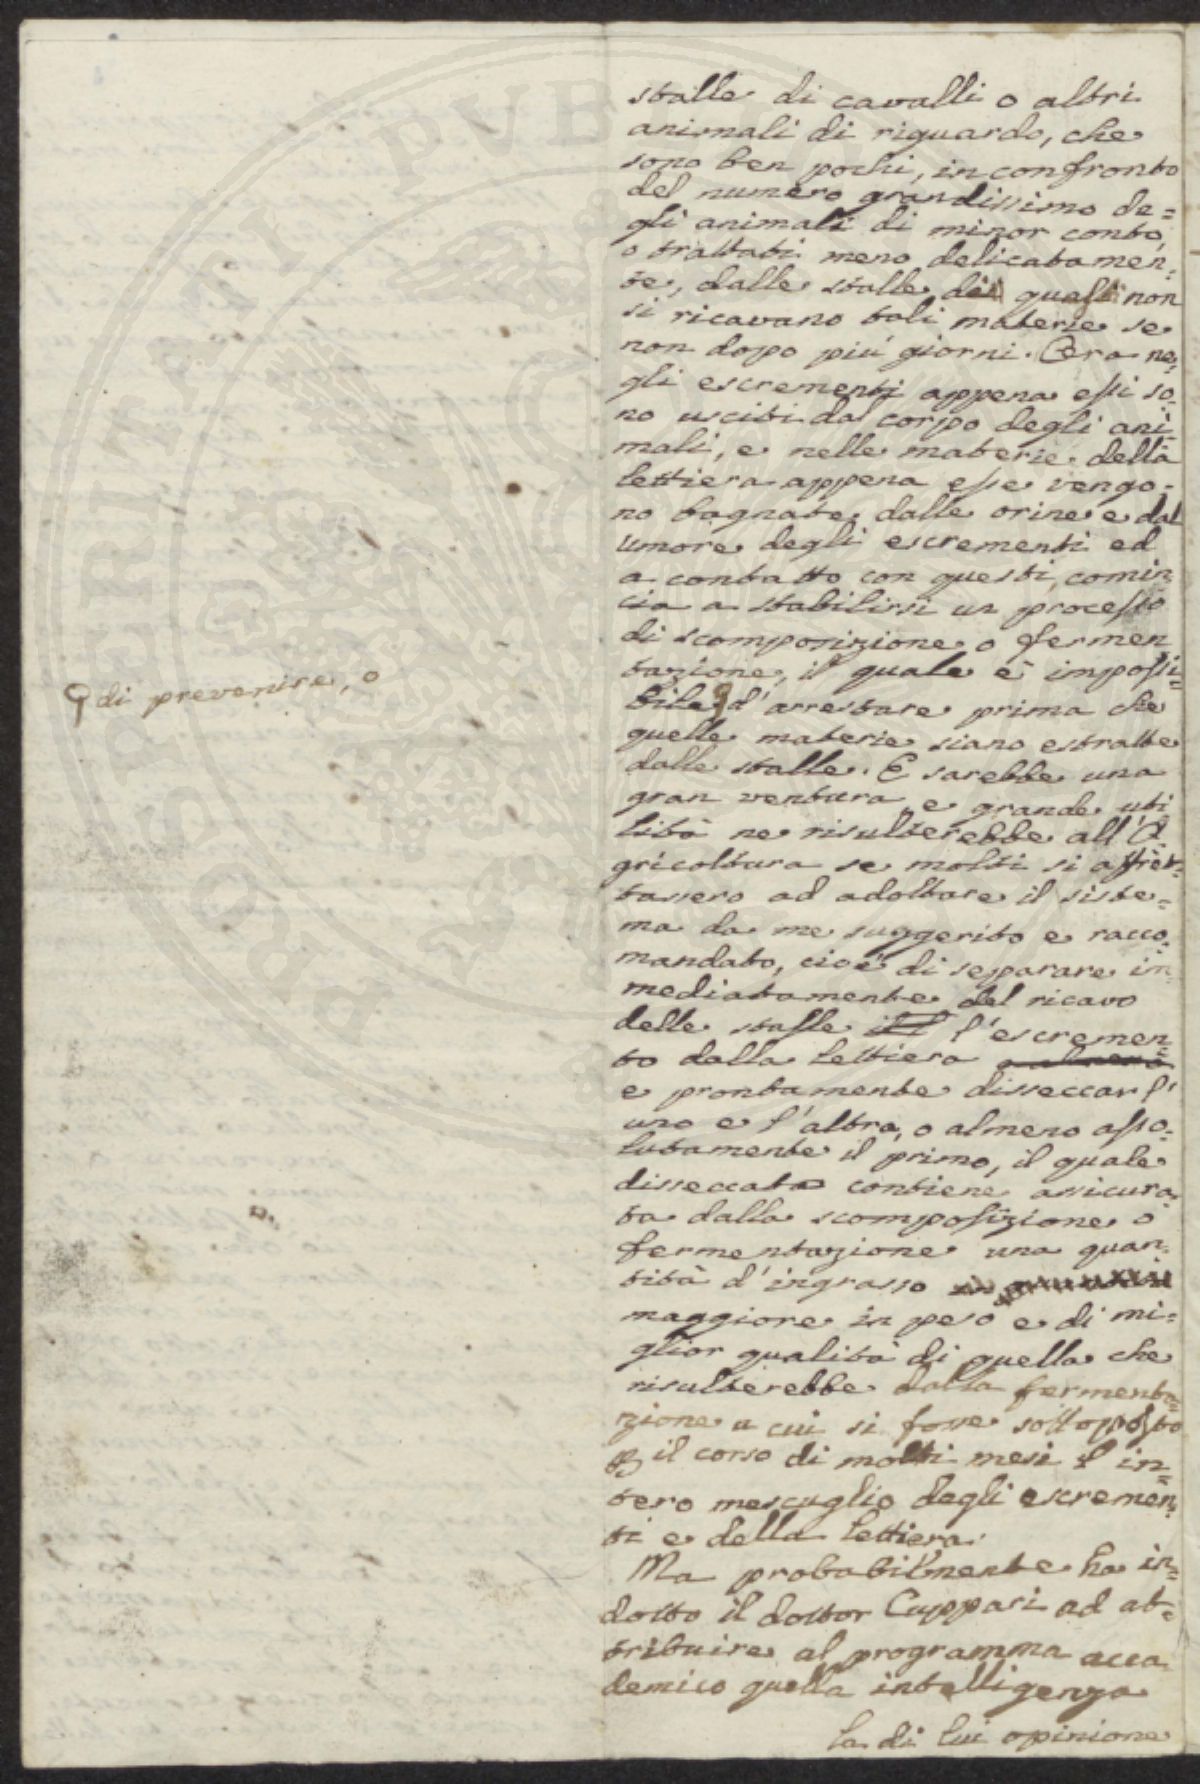 stalle di cavalli o altri
animali di riguardo, che
sono ben pochi, in confronto
del numero grandissimo de=
gli animali di minor conto,
o trattati meno delicatamen=
te, dalle stalle dei quali non
si ricavano tali materie se
non dopo più giorni. Ora ne=
gli escrementi appena essi so=
no usciti dal corpo degli ani=
mali, e nelle materie della
lettiera appena esse vengo=
no bagnate dalle orine e dal
umore degli escrementi ed
a contatto con questi, comin=
cia a stabilirsi un processo
di scomposizione o fermen
tazione, il quale è impossi=
di prevenire, o
bile d'arrestare prima che
quelle materie siano estratte
dalle stalle. E sarebbe una
gran ventura, e grande uti
lità ne risulterebbe all'A
gricoltura se molti si affret=
tassero ad adottare il siste=
ma da me suggerito e racco=
mandato, cioè di separare im=
mediatamente del ricavo
delle stalle l'escremen=
to dalla lettiera
e prontamente disseccar l'
uno e l'altra, o almeno asso=
lutamente il primo, il quale
disseccato contiene assicura
ta dalla scomposizione o
fermentazione una quan=
tità d'ingrasso
maggiore in peso e di mi=
glior qualità di quella che
risulterebbe dalla fermenta=
zione a cui si fosse sottoposto
per il corso di molti mesi l'in=
tero mescuglio degli escremen=
ti e della lettiera.
Ma probabilmente ha in=
dotto il dottor Cuppari ad at=
tribuire al programma acca
demico quella intelligenza
la di lui opinione
PUBL